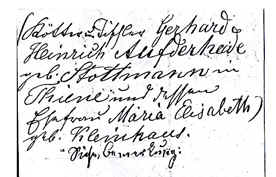 (Kötter u. Tischler Gerhard
Heinrich Aufderheide
geb. Stottmann in
Thiene und dessen
Ehefrau Maria Elisabeth)
geb. Kleinhaus.
Siehe Bemerkung: